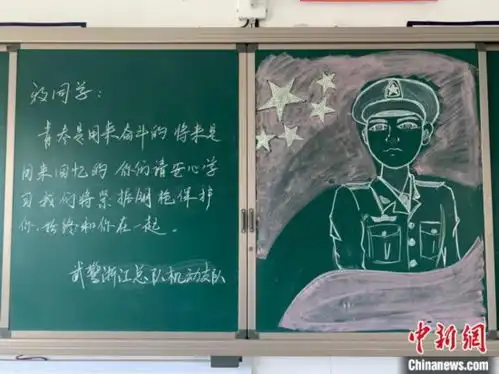 致同学：
青春是用来奋斗的 将来是
用来回忆的 你们请安心学
习 我们将紧握钢枪保护
你，始终和你在一起。
武警浙江总队机动支队
中新网
Chinanews.com